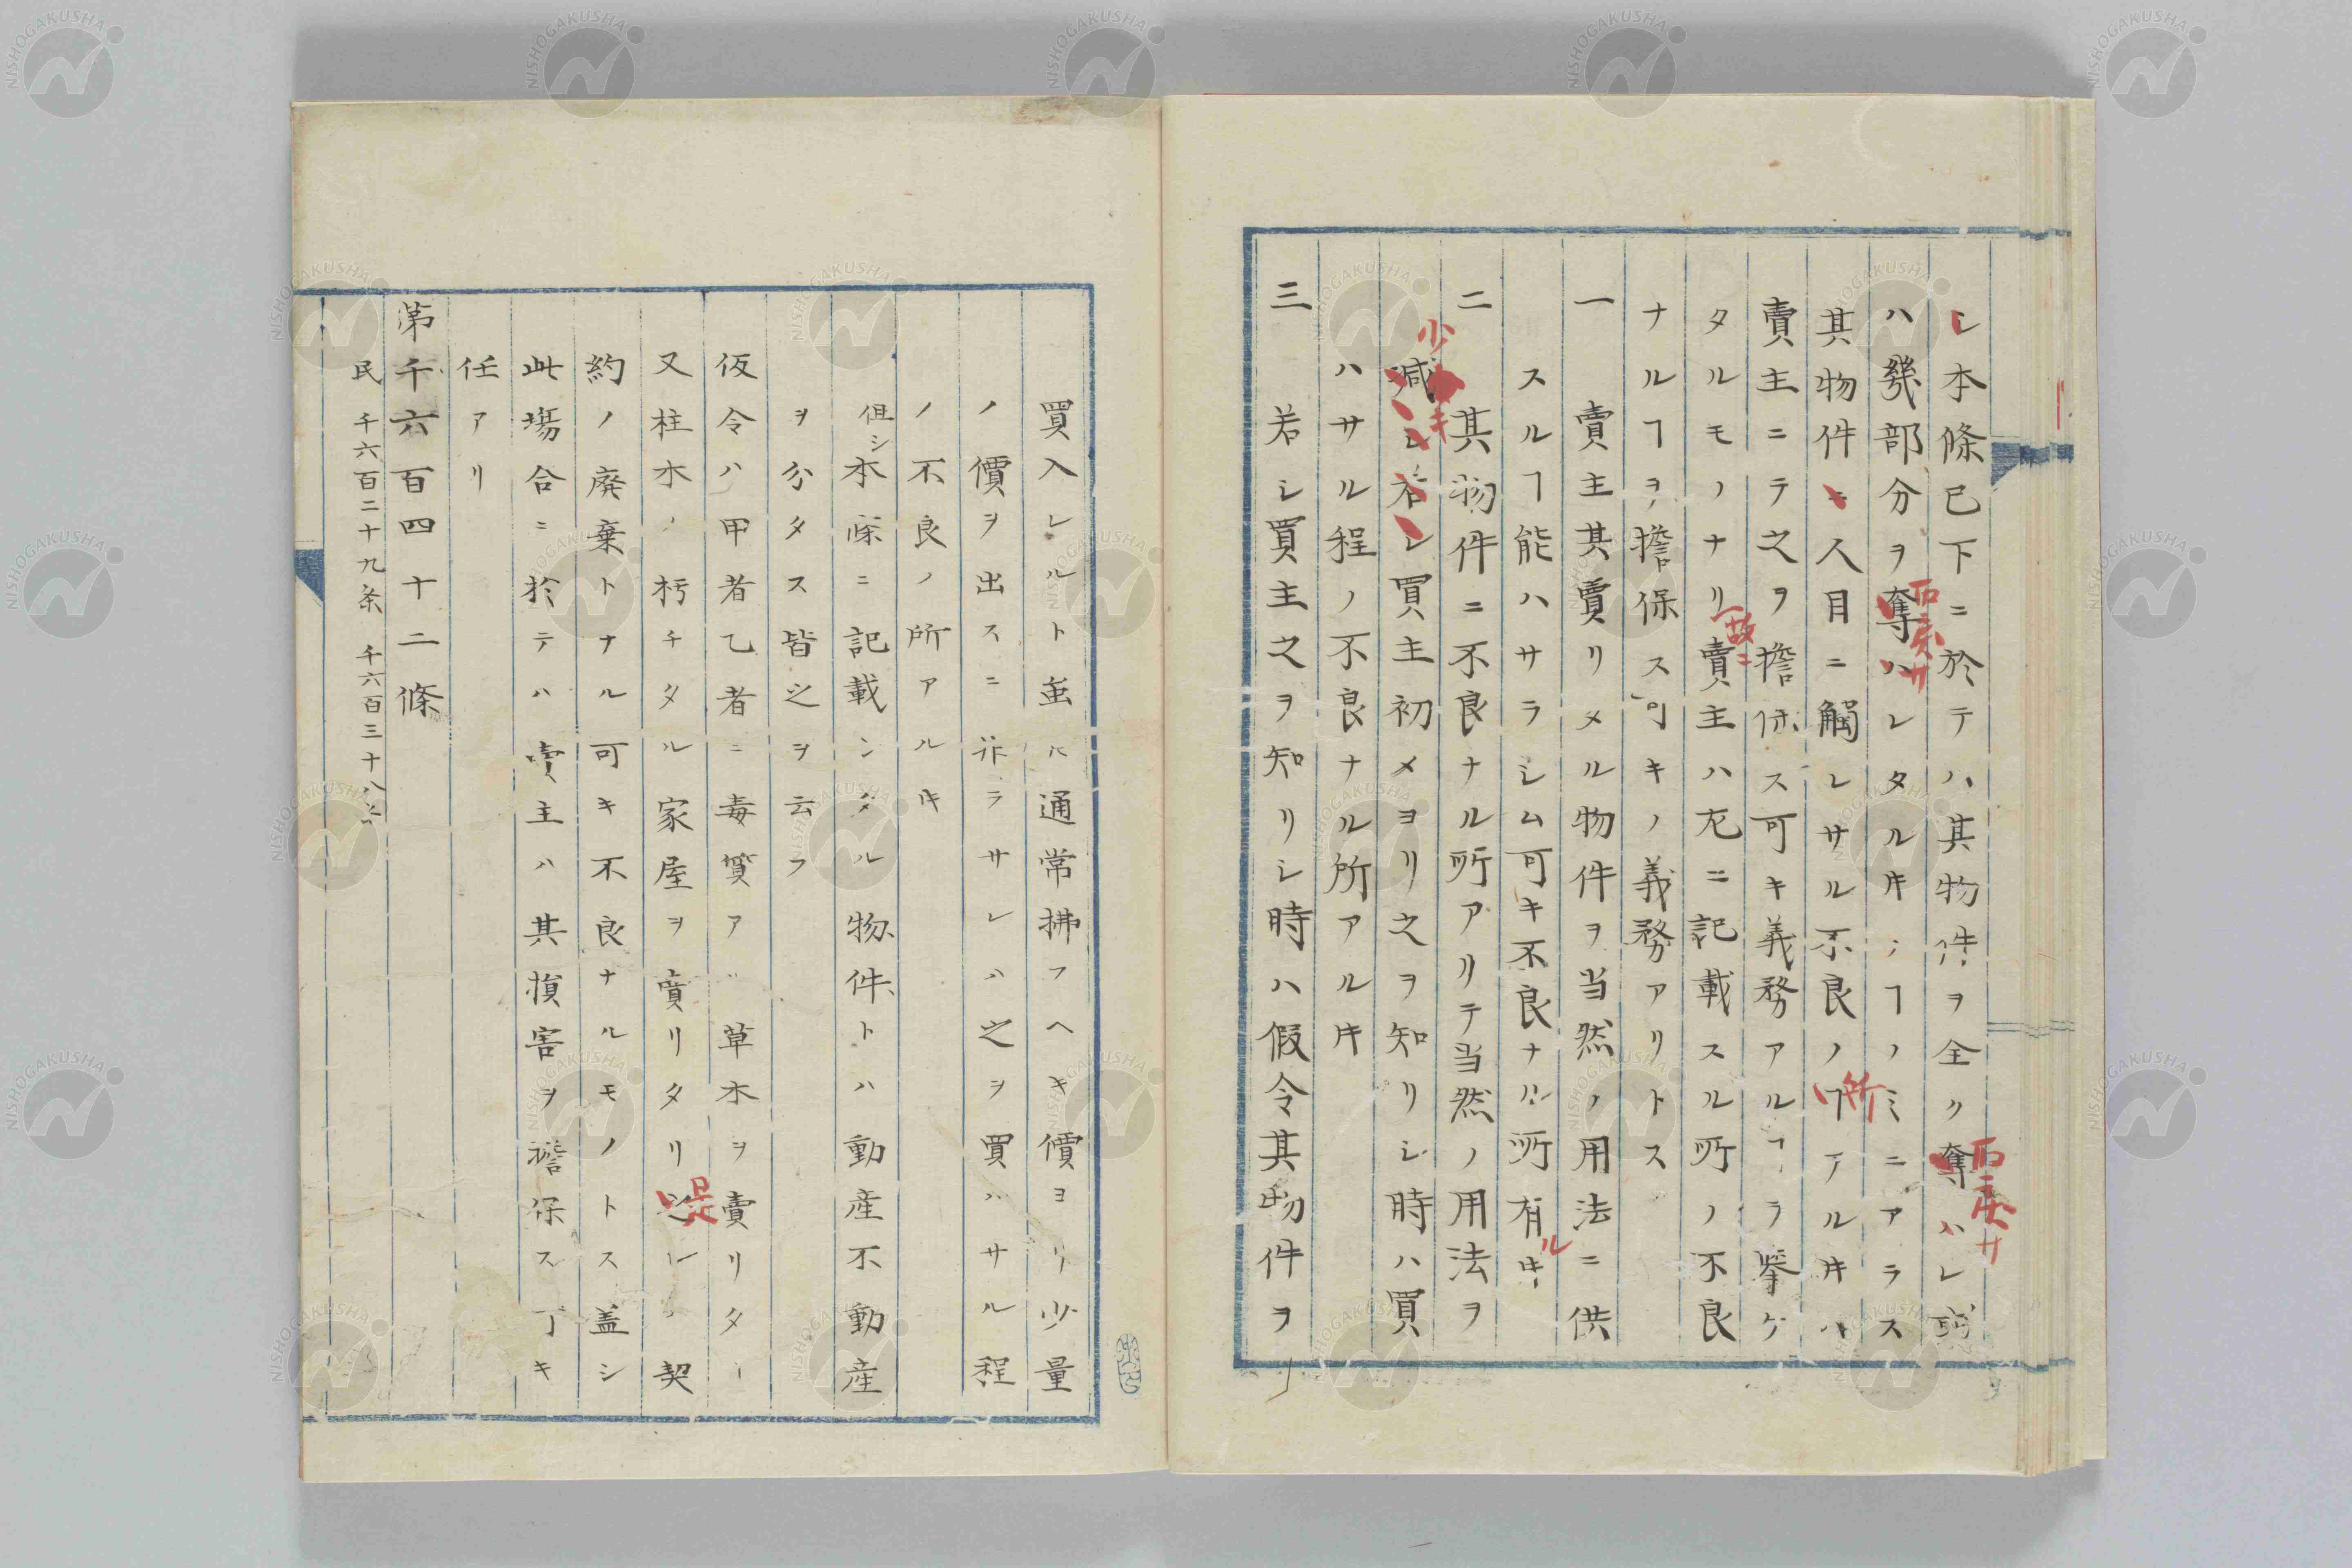 レ本條已下ニ於テハ其物件ヲ全ク奪ハレ或
ハ幾部分ヲ奪ハレタルキノヿノミニアラス
其物件ニ人目ニ觸レサル不良ノヿアルキハ
賣主ニテ之ヲ擔保ス可キ義務アルヿヲ挙ケ
タルモノナリ賣主ハ左ニ記載スル所ノ不良
ナルヿヲ擔保ス可キノ義務アリトス
一 賣主其賣リメル物件ヲ当然ノ用法ニ供
スルヿ能ハサラシム可キ不良ナル所有ルキ
二 其物件ニ不良ナル所アリテ当然ノ用法ヲ
減シ若シ買主初メヨリ之ヲ知リシ時ハ買
ハサル程ノ不良ナル所アルキ
三 若シ買主之ヲ知リシ時ハ假令其物件ヲ
買入レルト虽𪜈通常拂フヘキ價ヨリ少量
ノ價ヲ出スニ非ラサレハ之ヲ買ハサル程
ノ不良ノ所アルキ
但シ本條ニ記載シタル物件トハ動産不動産
ヲ分タス皆之ヲ云フ
仮令ハ甲者乙者ニ毒質アル草木ヲ賣リタ
又柱木ノ朽チタル家屋ヲ賣リタリ是レ契
約ノ廃棄トナル可キ不良ナルモノトス盖シ
此塲合ニ於テハ賣主ハ其損害ヲ擔保ス可キ
任アリ
第千六百四十二條
民 千六百二十九条 千六百三十八条
少
キ
故ニ
所
ル
是